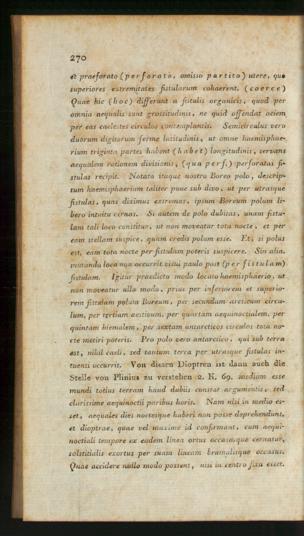 270
et praeforato (perforato, omisso partito) utere, quo
superiores extremitates fistularum cohaerent. (coerce)
Quae hic (hoc) differunt a fistulis organicis, quod per
omnia aequalis sunt grossitudinis, ne quid offendat aciem
per eas caelestes circulos contemplantis. Semicirculus vero
duorum digitorum ferme latitudinis, ut omne haemisphae-
rium triginta partes habent (habet) longitudinis, servans
aequalem rationem divisionis, (qua perf.) perforatas fi-
stulas recipit. Notato itaque nostro Boreo polo, descrip-
tum haemisphaerium taliter pone sub divo, ut per utrasque
fistulas, quas diximus extremas, ipsum Boreum polum li-
bero intuitu cernas. Si autem de polo dubitas, unam fistu-
lam tali loco constitue, ut non moveatur tota nocte, et per
eam stellam suspice, quam credis polum esse. Et, si polus
est, eam tota nocte per fistulam poteris suspicere. Sin alia,
mutando loca non occurrit visui paulo post (per fistulam)
fistulam. Igitur praedicto modo locato haemisphaerio, ut
non moveatur ullo modo, prius per inferiorem et superio-
rem fistulam polum Boreum, per secundam arcticum circu-
lum, per tertiam aestivum, per quartam aequinoctialem, per
quintam hiemalem, per sextam antarcticos circulos tota no-
cte metiri poteris. Pro polo vero antarctico, qui sub terra
est, nihil caeli, sed tantum terra per utrasque fistulas in-
tuenti occurrit. Von diesen Dioptren ist dann auch die
Stelle von Plinius zu verstehen 2. K. 69. mediam esse
mundi totius terram haud dubiis constat argumentis, sed
clarissime aequinoctii paribus horis. Nam nisi in medio es-
set, aequales dies noctesque haberi non posse deprehendunt,
et dioptrae, quae vel maxime id confirmant, cum aequi-
noctiali tempore ex eadem linea ortus occasusque cernatur,
solstitialis exortus per suam lineam brumalisque occasus.
Quae accidere nullo modo possent, nisi in centro sita esset.